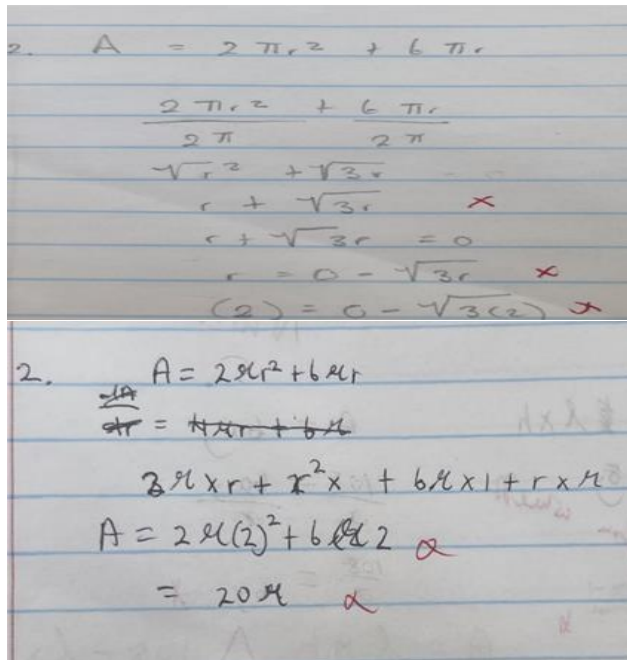 2. A = 2πr² + 6πr
2πr² + 6πr
2π 2π
√r² + √3r
r + √3r ×
r + √3r = 0
r = 0 - √3r ×
(2) = 0 - √3(2) ×
2. A = 2πr² + 6πr
dA
dr = 4πr + 6π
2π × r + r² × + 6π × 1 + r × π
A = 2π(2)² + 6π2
= 20π